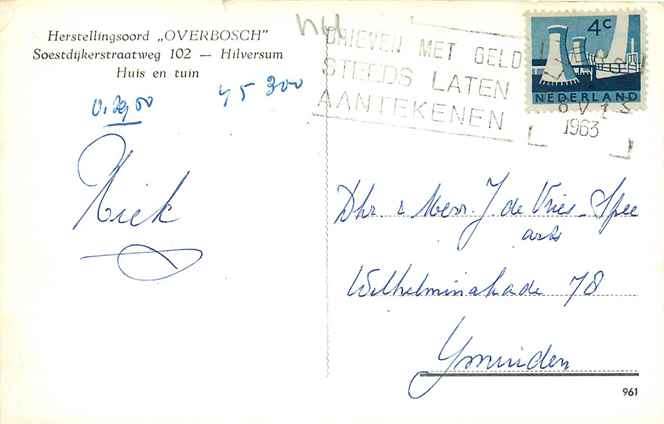 Herstellingsoord „OVERBOSCH"
Soestdijkerstraatweg 102 — Hilversum
Huis en tuin
45300
Niek
BRIEVEN MET GELD
STEEDS LATEN
AANTEKENEN
4c
NEDERLAND
1963
Dhr. & Mevr. J. de Vries-Spee
arts
Wilhelminakade 78
Ymuiden
961